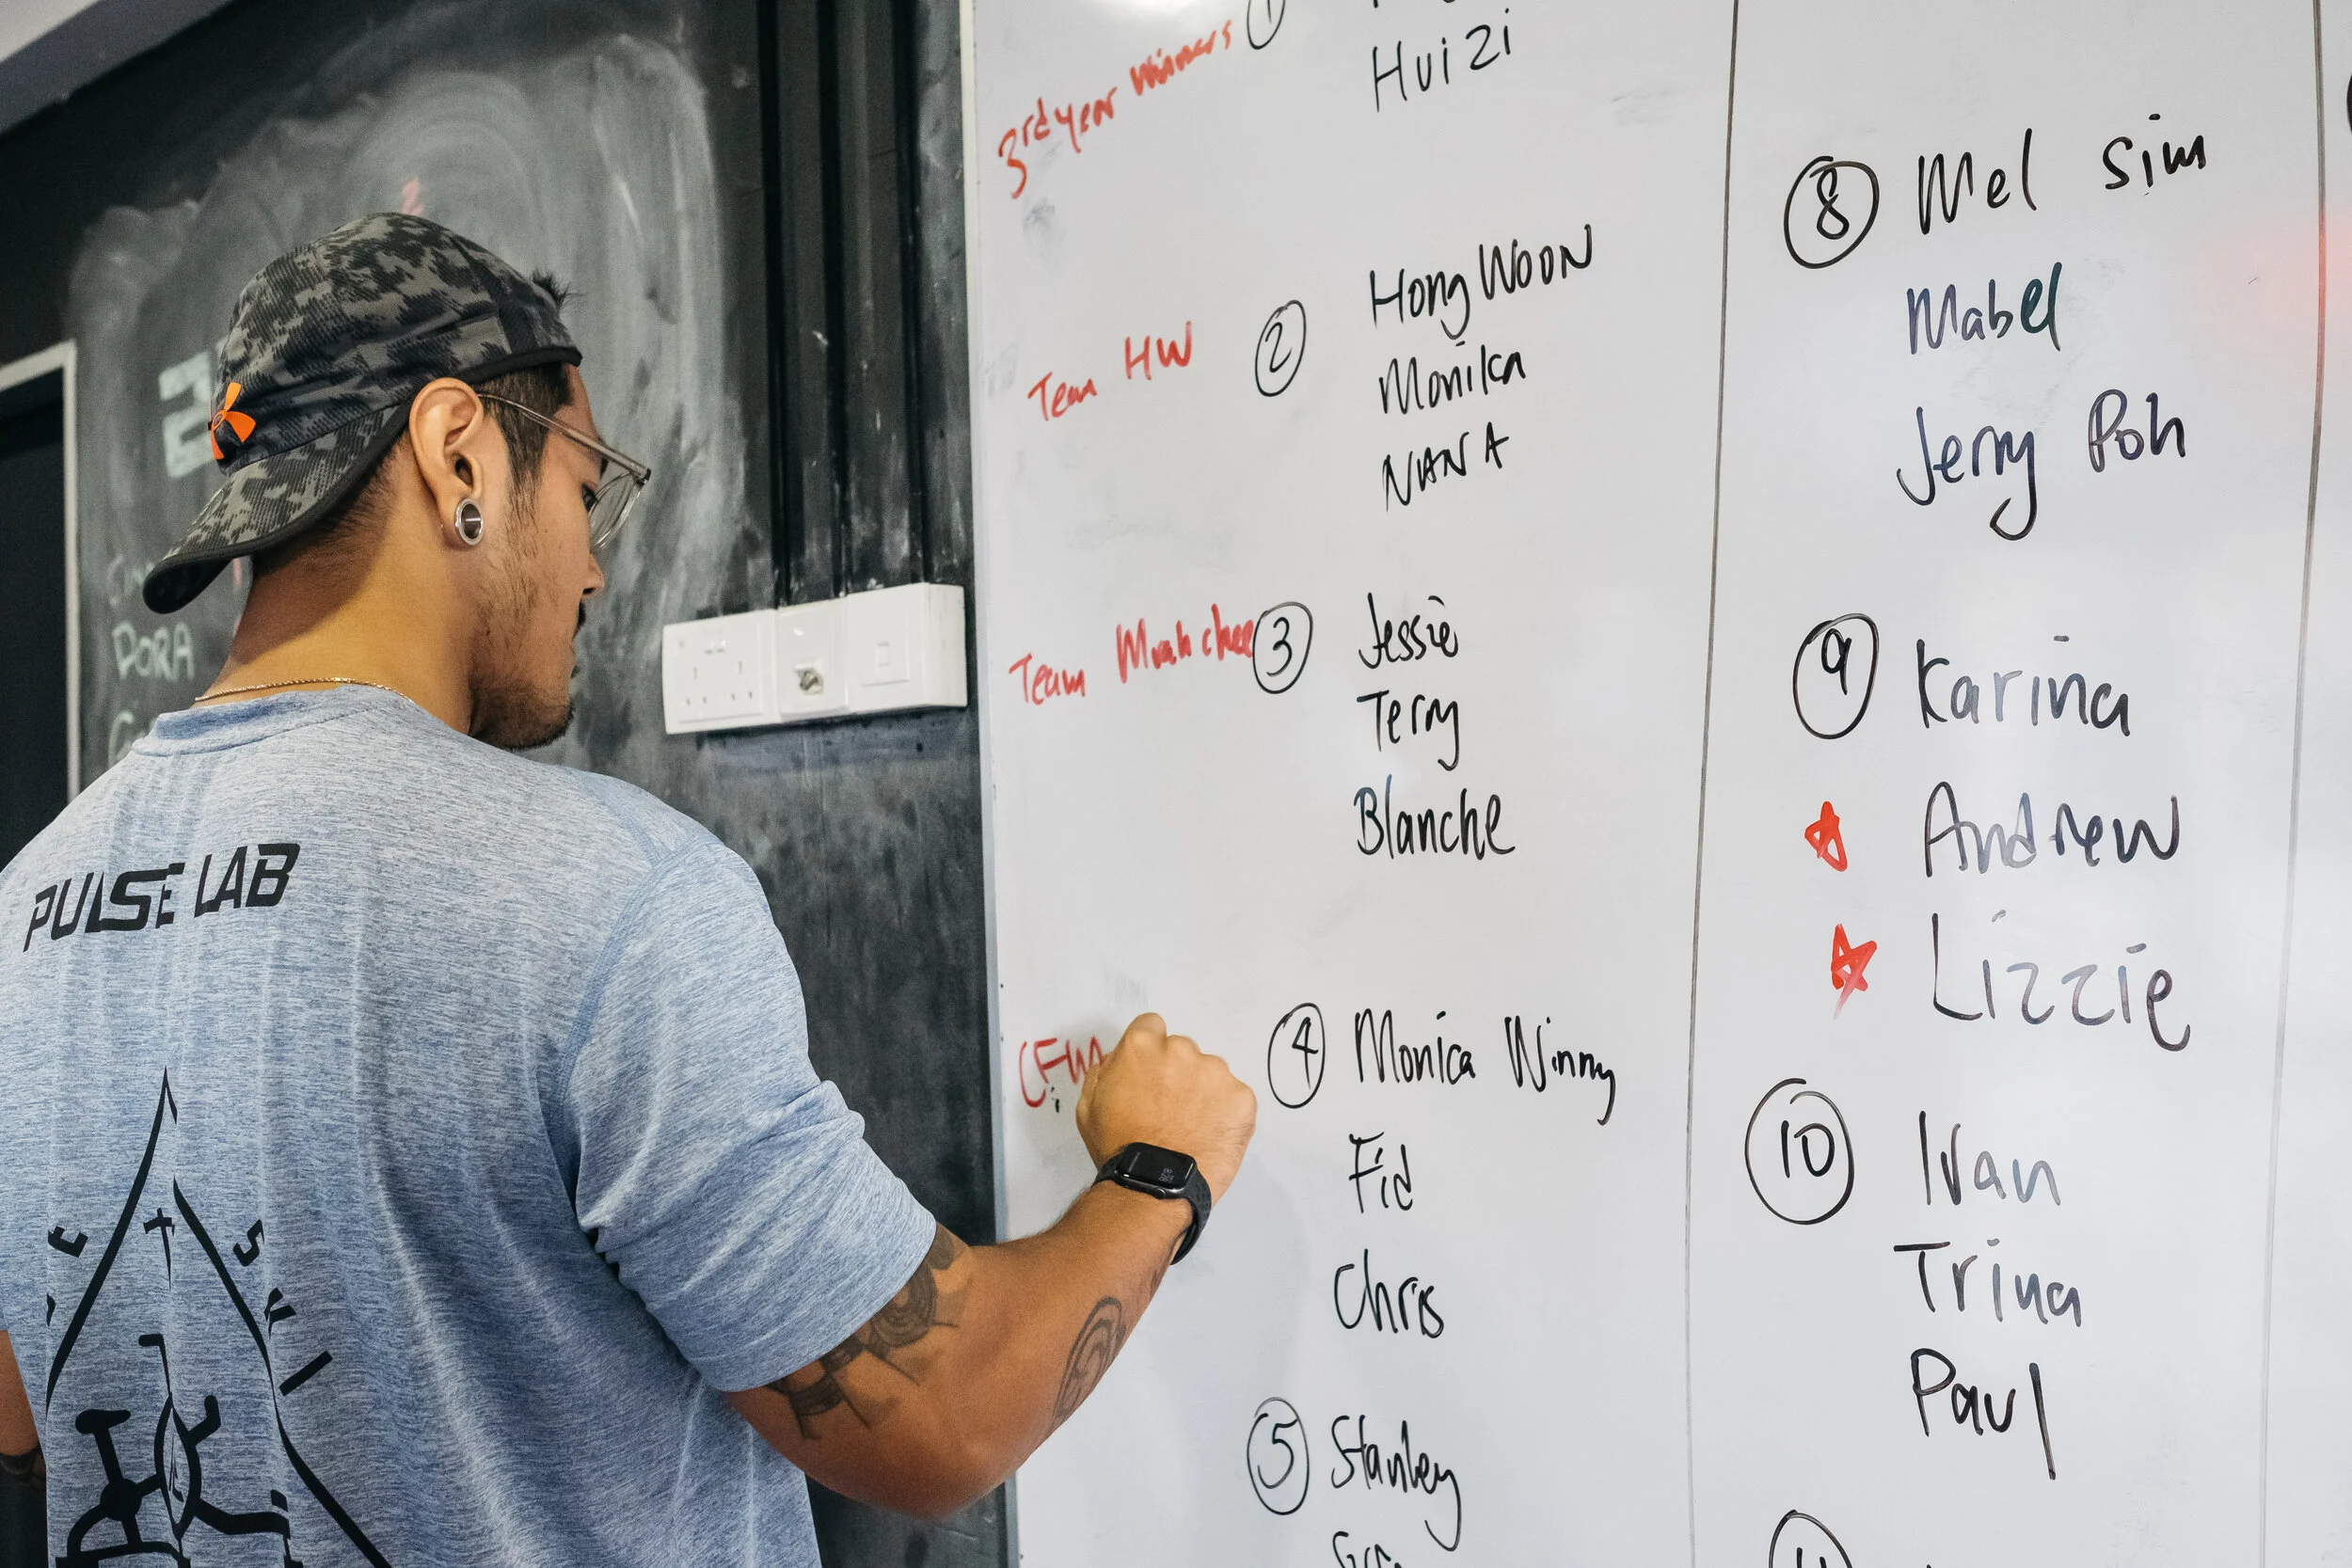 3rd year Winners ①
Hui Zi
Team HW ② Hong Woon
Monika
NANA
Team Muah chee ③ Jessie
Terry
Blanche
④ Monica Winny
Fid
Chris
⑤ Stanley
⑧ Mel Sim
Mabel
Jerry Poh
⑨ Karina
Andrew
Lizzie
⑩ Ivan
Trina
Paul
DORA
PULSE LAB